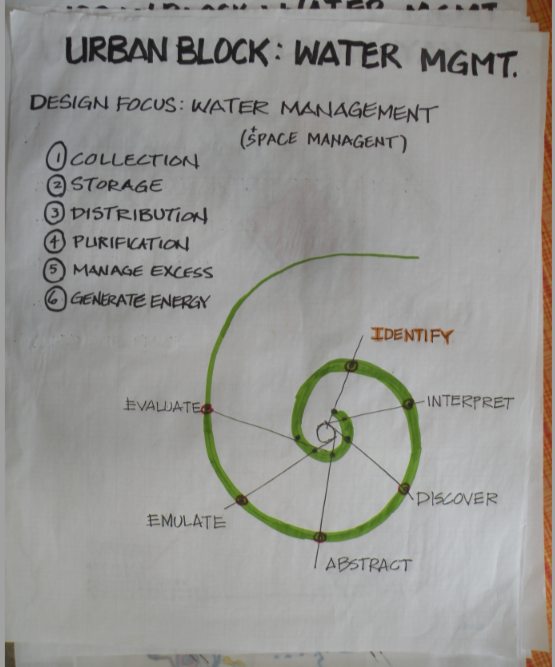 URBAN BLOCK: WATER MGMT.
DESIGN FOCUS: WATER MANAGEMENT
(+SPACE MANAGENT)
① COLLECTION
② STORAGE
③ DISTRIBUTION
④ PURIFICATION
⑤ MANAGE EXCESS
⑥ GENERATE ENERGY
IDENTIFY
INTERPRET
EVALUATE
DISCOVER
EMULATE
ABSTRACT